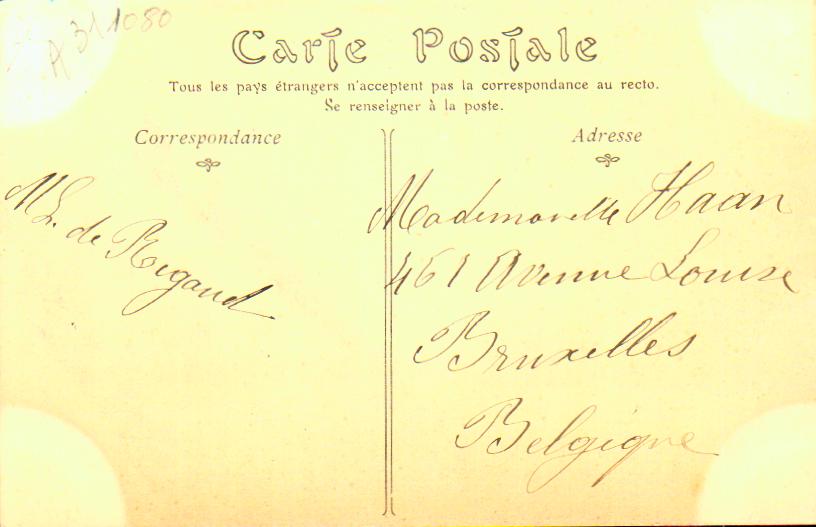 A 311080
Carte Postale
Tous les pays étrangers n'acceptent pas la correspondance au recto.
Se renseigner à la poste.
Correspondance
ML. de Rigaud
Adresse
Mademoiselle Haan
461 Avenue Louise
Bruxelles
Belgique